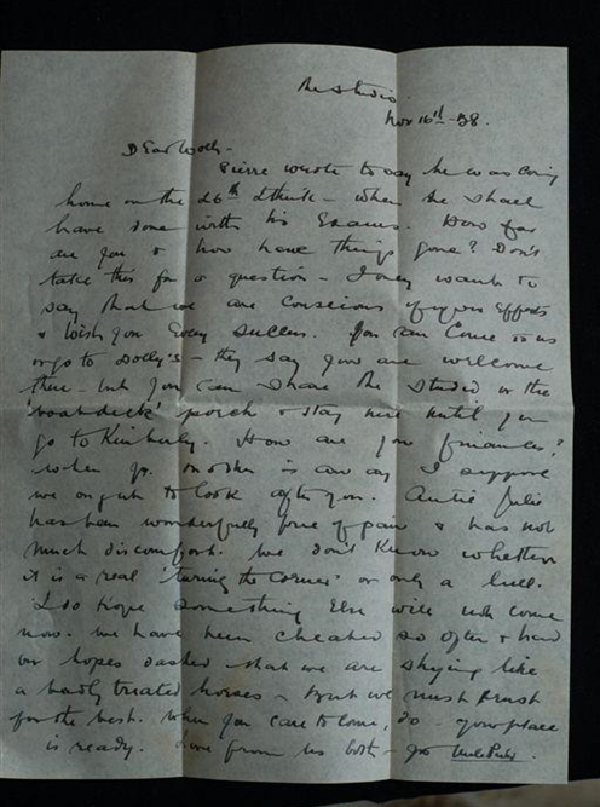 The Studio
Nov 16th - 38.
Dear Wolly -
Pierre wrote to say he was coming
home on the 26th I think - when he shall
have done with his Exams. How far
are you & how have things gone? Don't
take this for a question - I only want to
say that we are conscious of your efforts
& wish you Every success. You can come to us
or go to Dolly's - they say you are welcome
there - but you can share the studio or the
porch & stay here until you
go to Kimberly. How are your finances?
When yr. mother is away I suppose
we ought to look after you. Auntie Julie
has been wonderfully free of pain & has not
much discomfort. We don't know whether
it is a real 'turning the corner' or only a lull.
I do hope something Else will not come
now. We have been cheated so often & had
our hopes dashed that we are shying like
a badly treated horses - but we must trust
for the best. When you care to come, do - your place
is ready. Love from us both - yr